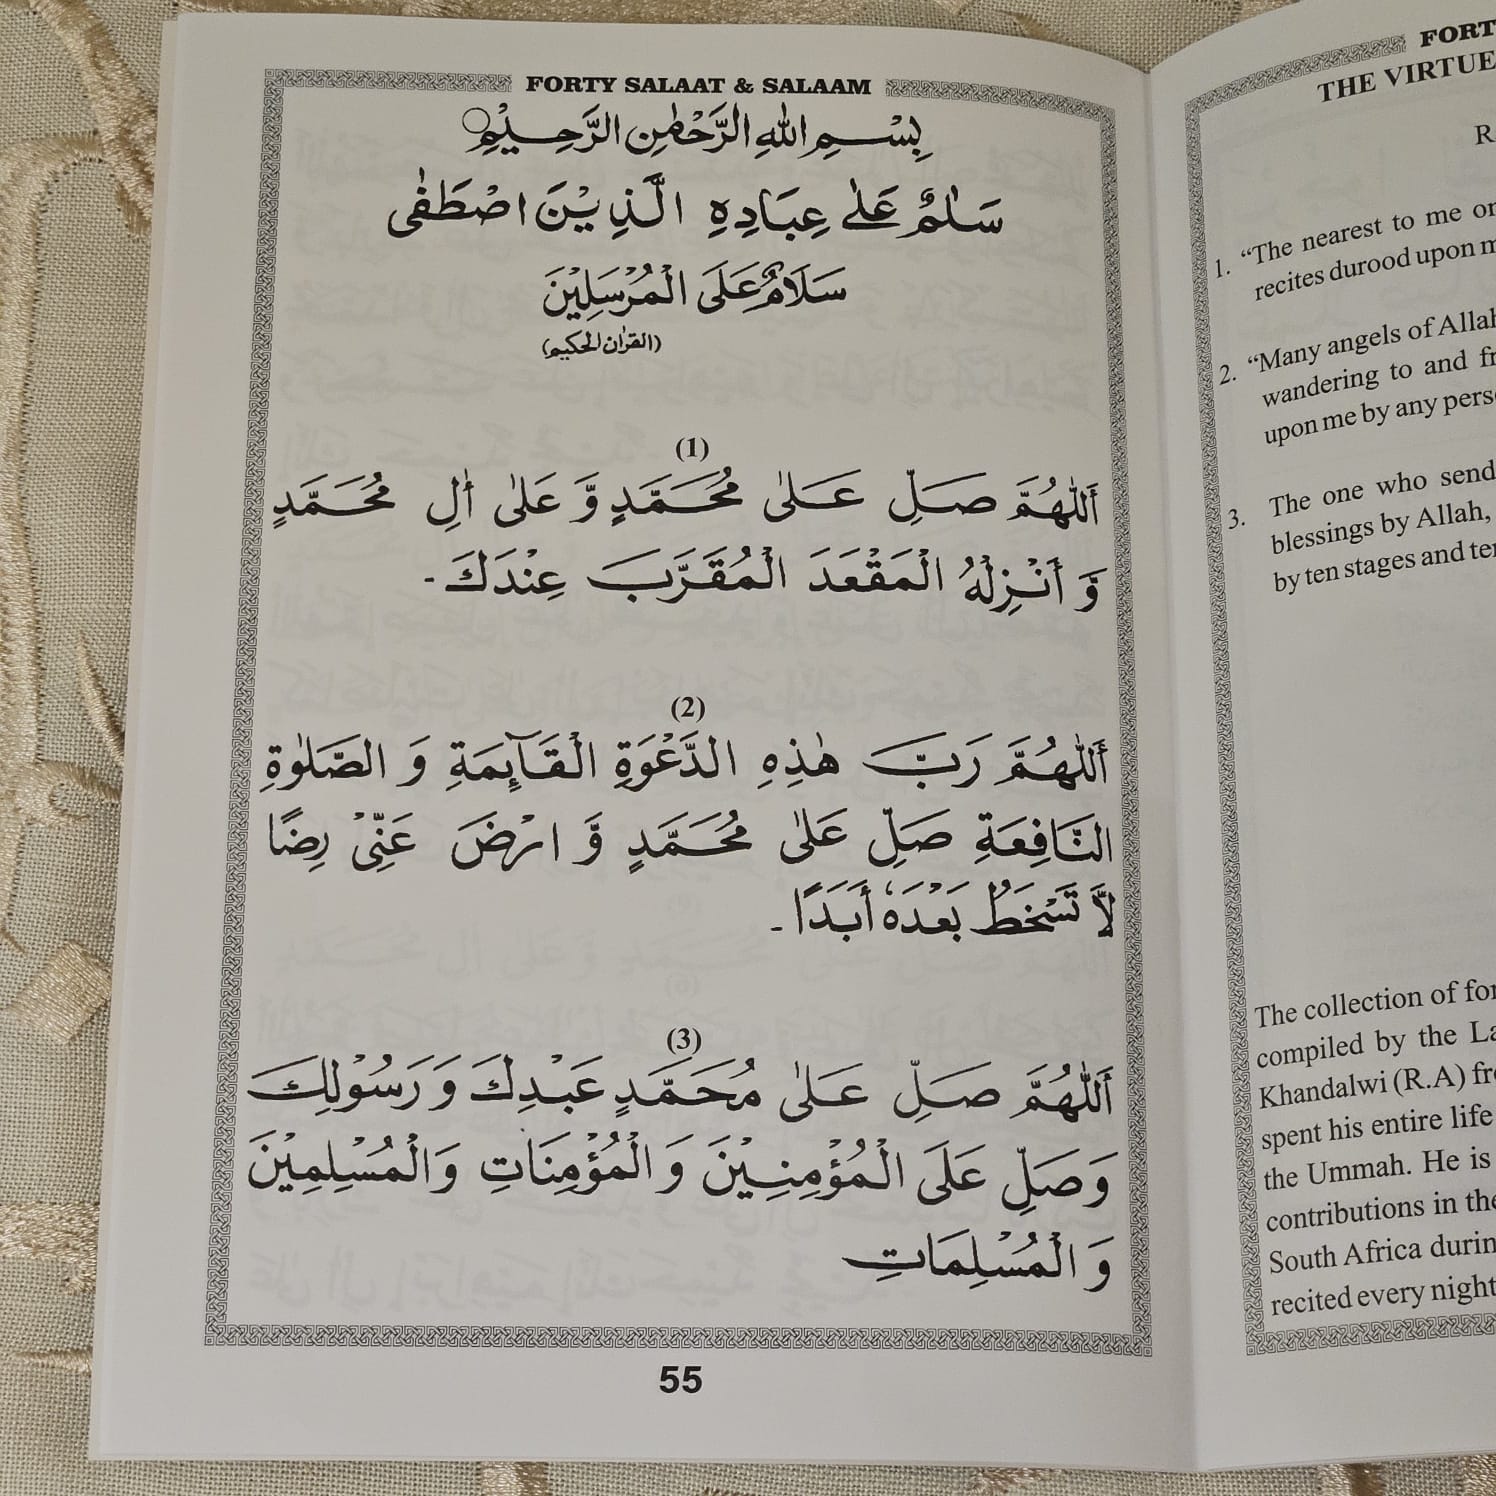 FORTY SALAAT & SALAAM
بِسْمِ اللهِ الرَّحْمٰنِ الرَّحِيْمِ
سَلٰمٌ عَلٰى عِبَادِهِ الَّذِيْنَ اصْطَفٰى
سَلَامٌ عَلَى الْمُرْسَلِيْنَ
(القراٰن الحكيم)
(1)
أَللّٰهُمَّ صَلِّ عَلٰى مُحَمَّدٍ وَّ عَلٰى أٰلِ مُحَمَّدٍ
وَّ أَنْزِلْهُ الْمَقْعَدَ الْمُقَرَّبَ عِنْدَكَ ۔
(2)
أَللّٰهُمَّ رَبَّ هٰذِهِ الدَّعْوَةِ الْقَآئِمَةِ وَ الصَّلٰوةِ
النَّافِعَةِ صَلِّ عَلٰى مُحَمَّدٍ وَّ ارْضَ عَنِّىْ رِضًا
لَّا تَسْخَطُ بَعْدَهٗ أَبَدًا ۔
(3)
أَللّٰهُمَّ صَلِّ عَلٰى مُحَمَّدٍ عَبْدِكَ وَ رَسُوْلِكَ
وَصَلِّ عَلَى الْمُؤْمِنِيْنَ وَ الْمُؤْمِنَاتِ وَالْمُسْلِمِيْنَ
وَ الْمُسْلِمَاتِ
55
THE VIRTUE
1. “The nearest to me
recites durood upon
2. “Many angels of Allah
wandering to and
upon me by any
3. The one who
blessings by Allah,
by ten stages and
The collection of
compiled by the
Khandalwi (R.A)
spent his entire life
the Ummah. He is
contributions in
South Africa
recited every night